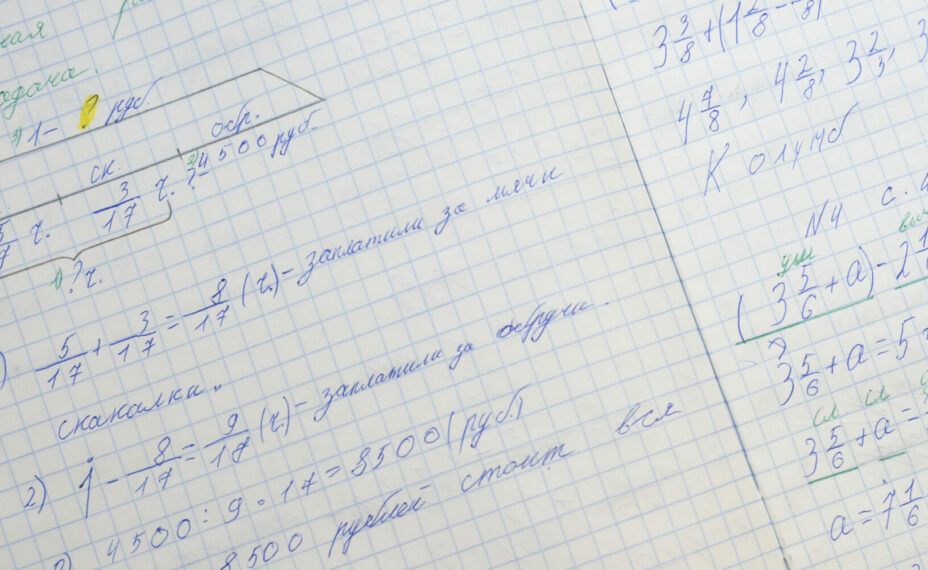 задача.
3) 1 - ? руб.
ск. обр.
3/17 ч. ? 4500 руб.
1) ? ч.
5/17 + 3/17 = 8/17 (ч.) - заплатили за мячи
скакалки.
2) 1 - 8/17 = 9/17 (ч.) - заплатили за обручи.
4500 : 9 · 17 = 8500 (руб.)
8500 рублей стоит вся
3 3/8 + (1
4 7/8, 4 2/8, 3 2/3, 3
Колумб
N4 с.
ум выч
(3 5/6 + a) - 2
3 5/6 + a = 5
сл сл
3 5/6 + a =
a = 7 1/6